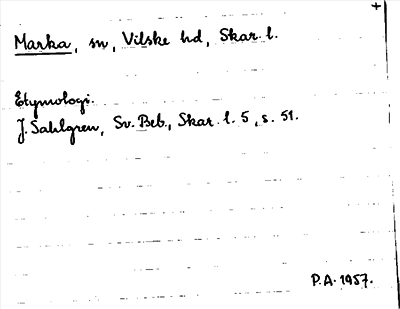 +
Marka, sn, Vilske hd, Skar. l.
Etymologi.
J. Sahlgren, Sv. Beb., Skar. l. 5, s. 51.
P.A. 1957.